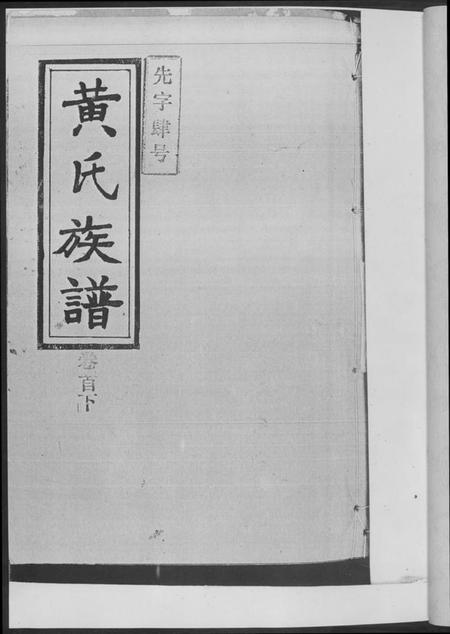 先字肆号
黄氏族譜
卷首下